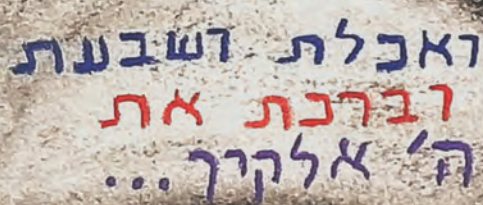 ואכלת ושבעת
וברכת את
ה' אלקיך...